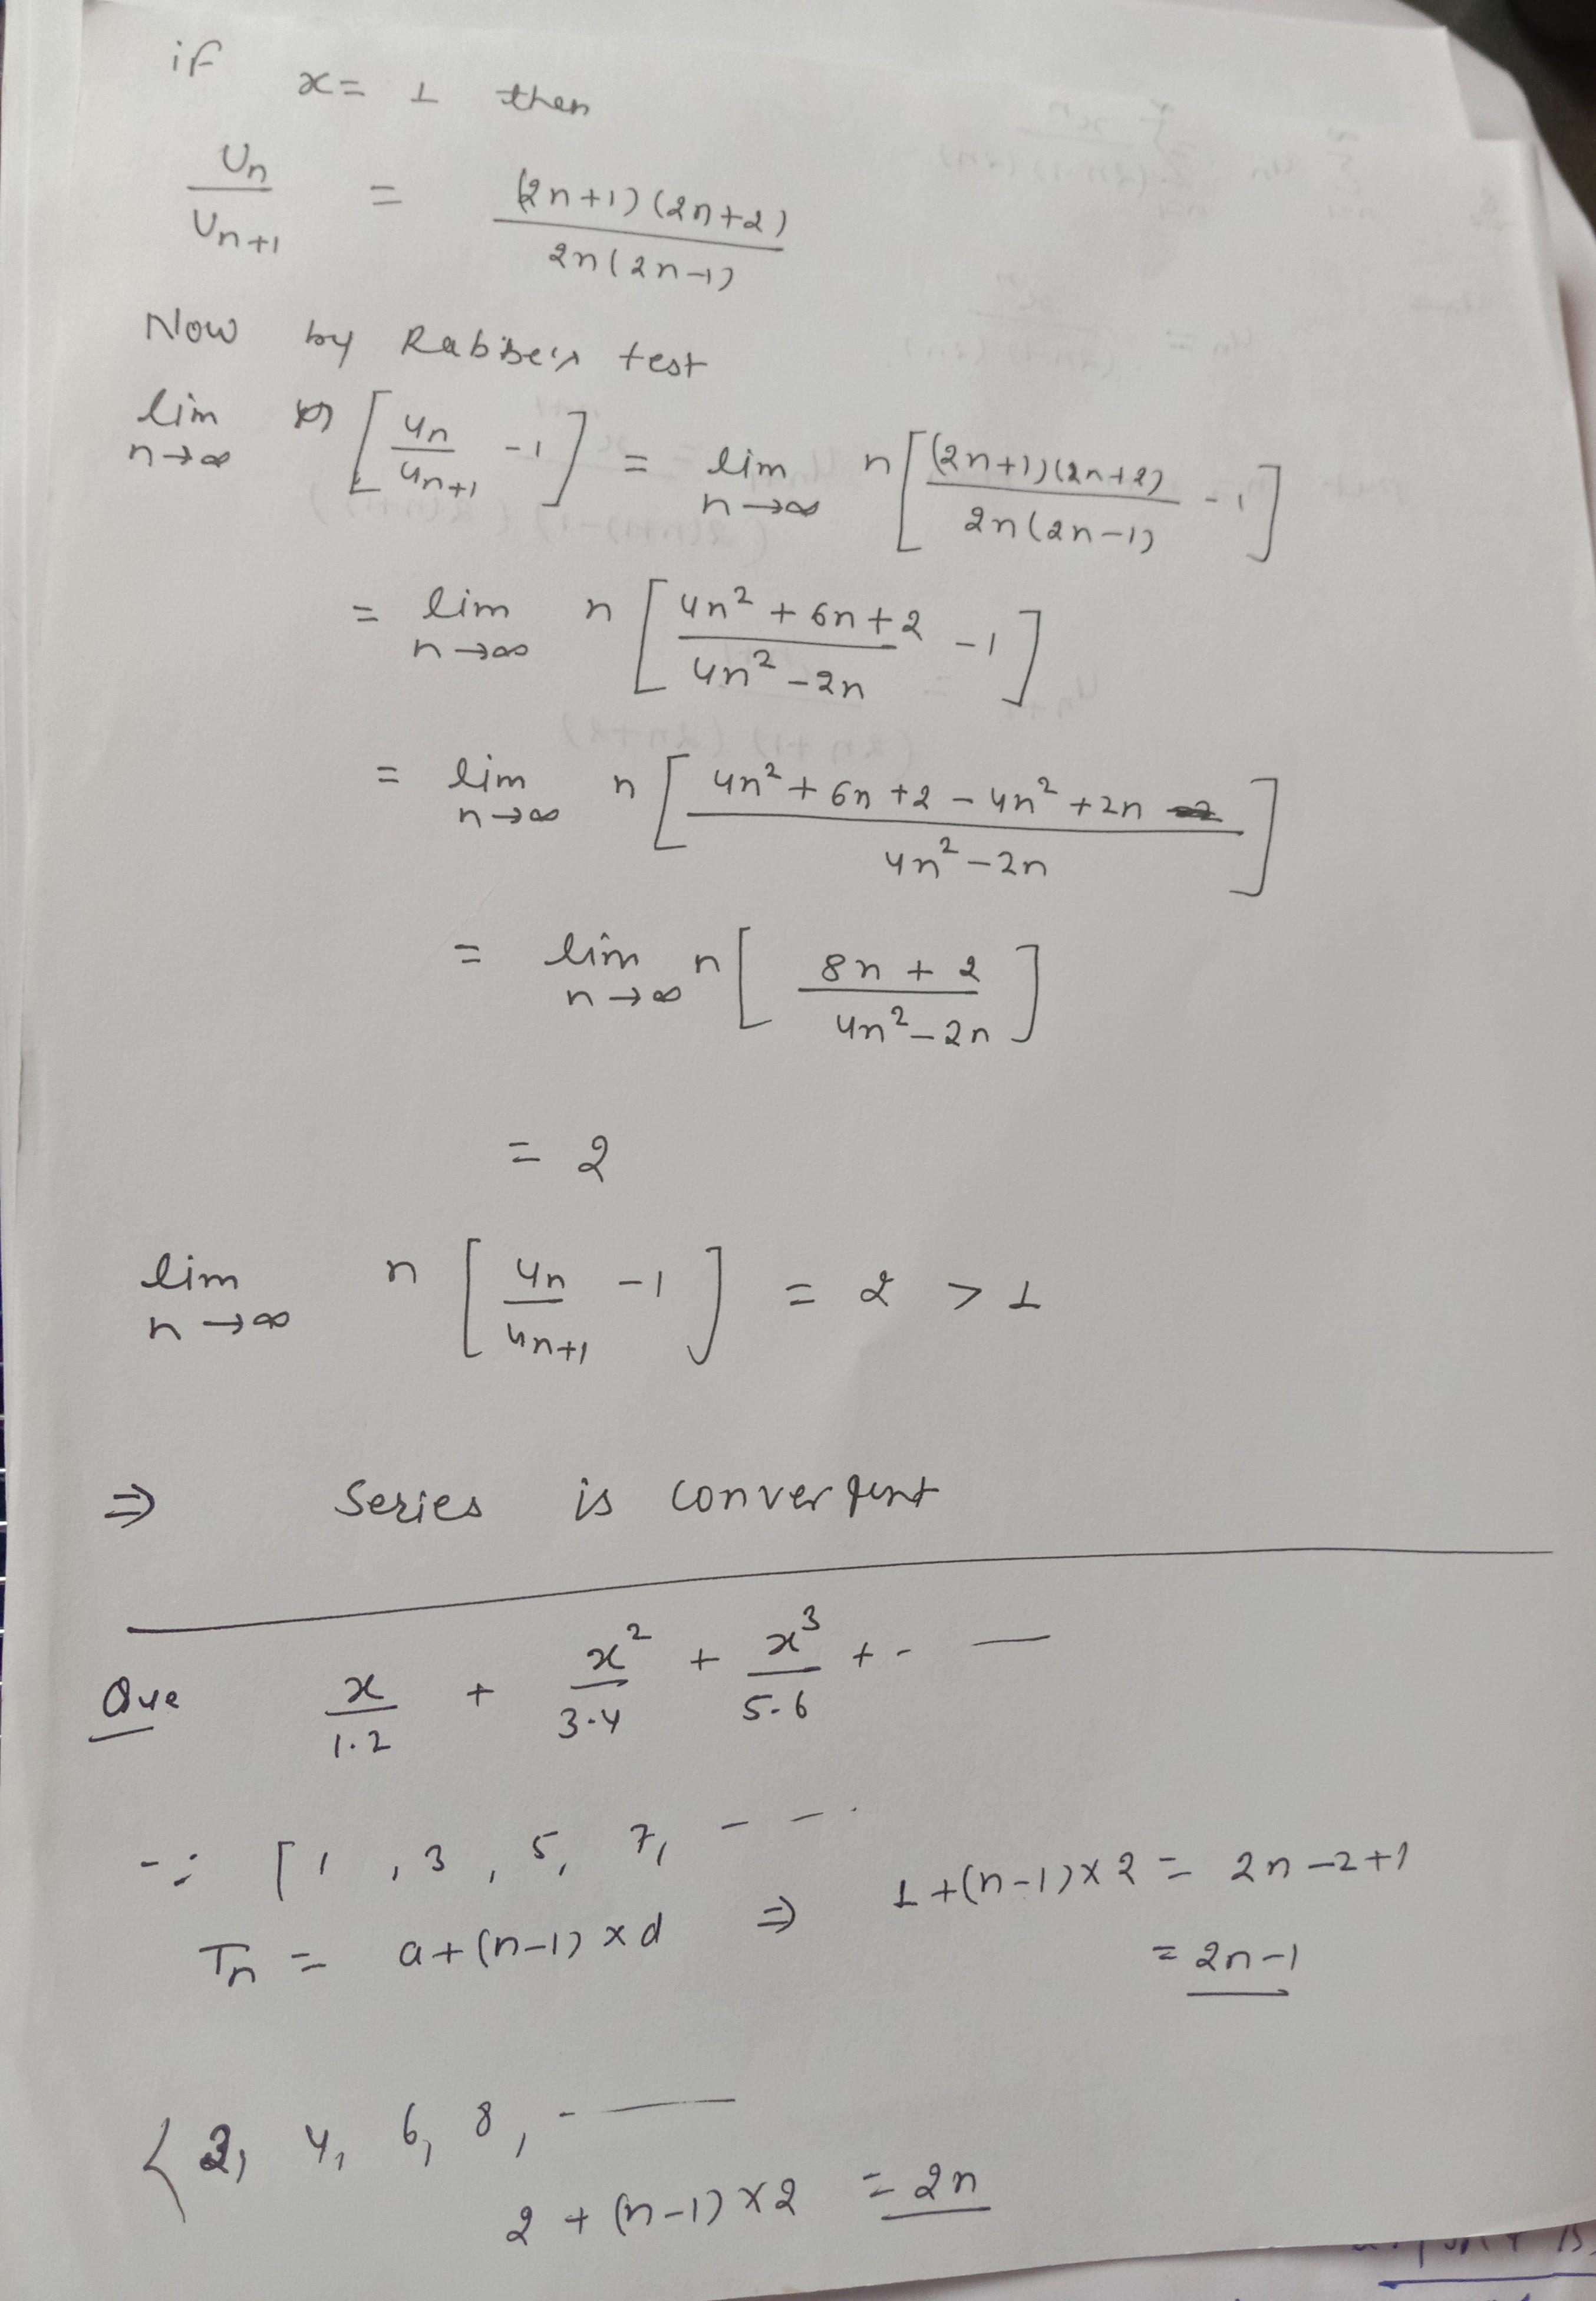 if x = 1 then
Un / Un+1 = (2n+1)(2n+2) / 2n(2n-1)
Now by test
lim n→∞ n [ un / un+1 - 1 ] = lim n→∞ n [ (2n+1)(2n+2) / 2n(2n-1) - 1 ]
= lim n→∞ n [ 4n² + 6n + 2 / 4n² - 2n - 1 ]
= lim n→∞ n [ 4n² + 6n + 2 - 4n² + 2n / 4n² - 2n ]
= lim n→∞ n [ 8n + 2 / 4n² - 2n ]
= 2
lim n→∞ n [ un / un+1 - 1 ] = 2 > 1
⇒ Series is convergent
Que x / 1.2 + x² / 3.4 + x³ / 5.6 + - —
∵ [ 1, 3, 5, 7, - - .
Tn = a+(n-1)×d ⇒ 1+(n-1)×2 = 2n-2+1
= 2n-1
{ 2, 4, 6, 8, - —
2 + (n-1)×2 = 2n